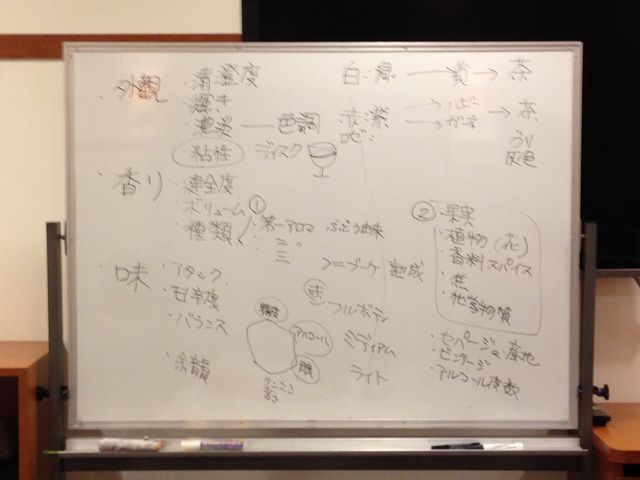 ・外観 ・清澄度
・輝き
・濃淡 — 色調
粘性 ディスク
白:緑 → 黄 → 茶
赤:紫 → ルビー → 茶
ロゼ: → ガーネ
灰色
・香り ・健全度
・ボリューム
・種類
① 第一アロマ ぶどう由来
二 〃
三 〃 =ブーケ 熟成
② ・果実
・植物(花)
・香料スパイス
・焦
・化学物質
・味 ・アタック
・甘辛度
・バランス
・余韻
アルコール
酸
タンニン
赤
フルボディ
ミディアム
ライト
・セパージュ・産地
・ビンテージ
・アルコール度数